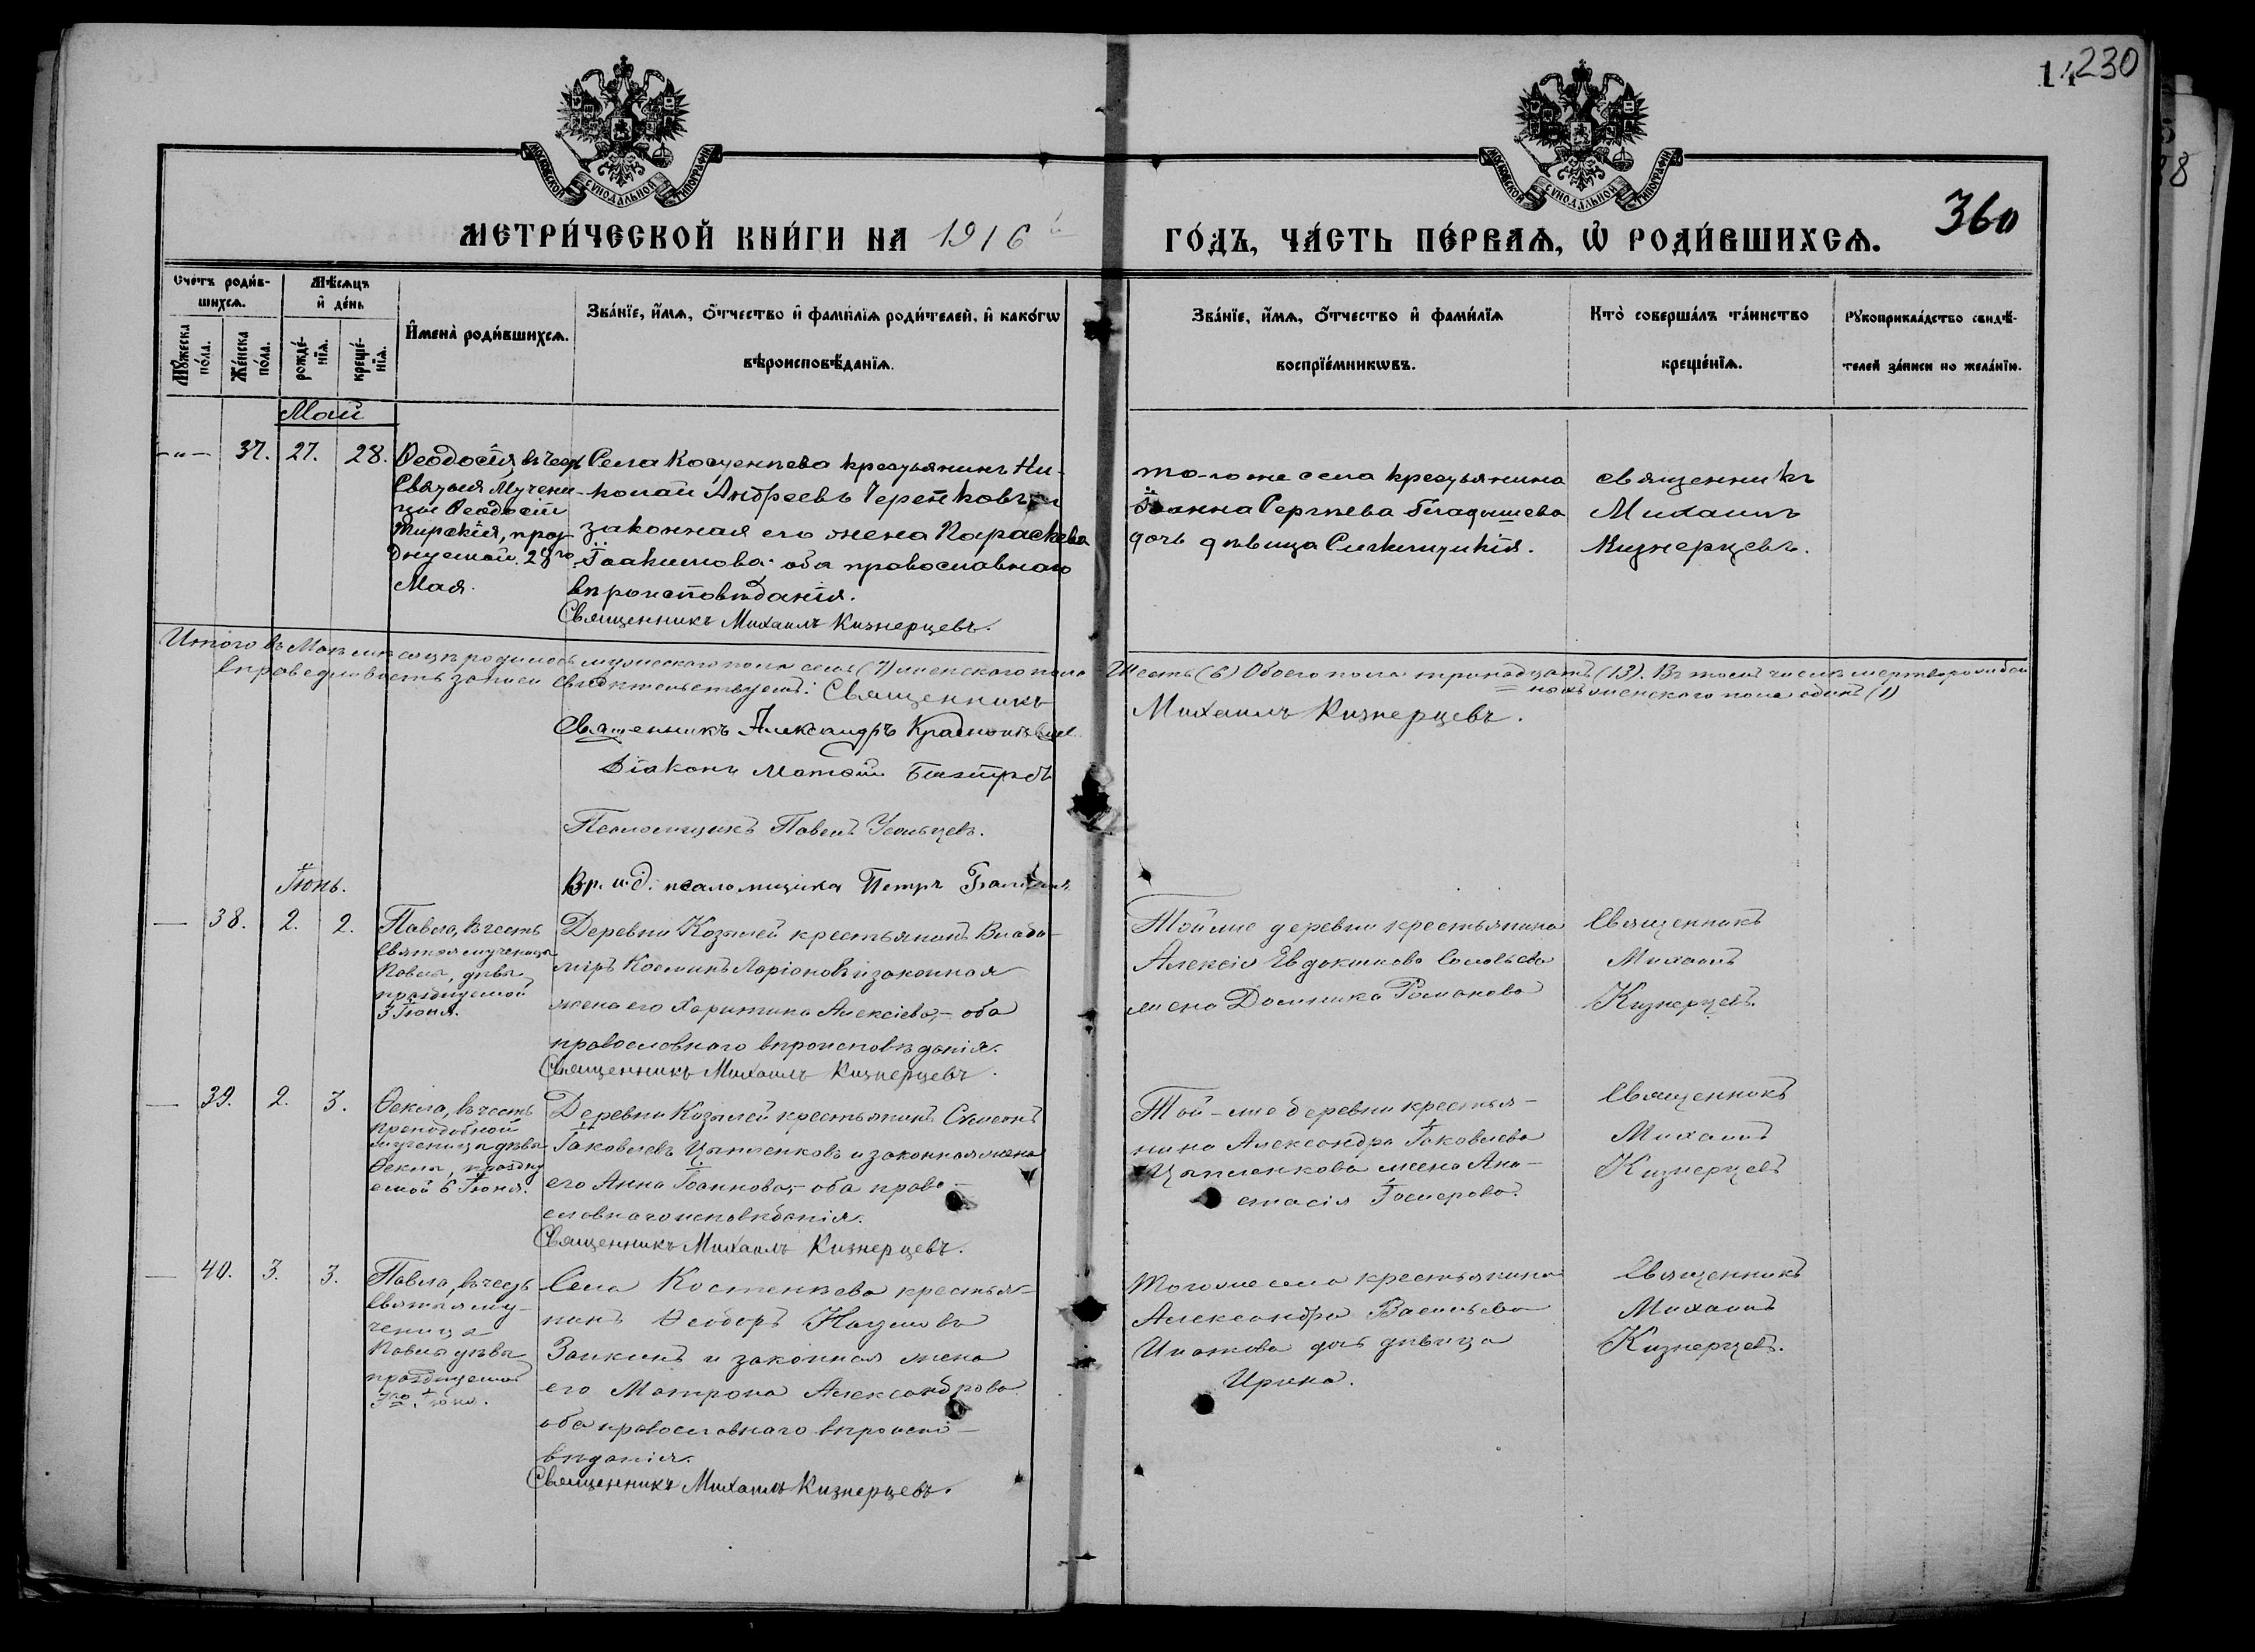 14 230
МОСКОВСКОЙ СѴНОДАЛЬНОЙ ТИПОГРАФІИ
МОСКОВСКОЙ СѴНОДАЛЬНОЙ ТИПОГРАФІИ
360
МЕТРИ́ЧЕСКОЙ КНИ́ГИ НА 1916 ГО́ДЪ, ЧА́СТЬ ПЕ́РВАѦ, Ѽ РОДИ́ВШИХСѦ.
Сче́тъ роди́в-
шихсѧ.
Мꙋ́жеска по́ла.
Же́нска по́ла.
Мѣ́сѧцъ
и҆ де́нь
рожде́-
нїѧ.
креще́-
нїѧ.
И҆мена̀ роди́вшихсѧ.
Зва́нїе, и҆́мѧ, ѻ҆́тчество и҆ фами́лїѧ роди́телей, и҆ како́гѡ
вѣроисповѣ́данїѧ.
Зва́нїе, и҆́мѧ, ѻ҆́тчество и҆ фами́лїѧ
воспрїе́мникѡвъ.
Кто̀ соверша́лъ та́инство
креще́нїѧ.
Рꙋкоприкла́дство свидѣ́-
телей за́писи по жела́нїю.
Май
-"- 37. 27. 28.
Ѳеодосія, въ честь
Святыя Мучени-
цы Ѳеодосіи
Тирскія, праз
днуемой 29го
Мая.
Села Костенкева крестьянинъ Ни-
колай Андреевъ Черепковъ и
законная его жена Параскева
Іоакимова: оба православнаго
вѣроисповѣданія.
Священникъ Михаилъ Кизнерцевъ.
того-же села крестьянина
Іоанна Сергѣева Гладышева
дочь дѣвица Сигклитикія.
Священникъ
Михаилъ
Кизнерцевъ.
Итого въ Маѣ мѣсяцѣ родилось мужескаго пола семь (7) женскаго пола Шесть (6) Обоего пола тринадцать (13). Въ томъ числѣ мерторожден
ныхъ женскаго пола одинъ (1)
вправедливость записи свидѣтельствуетъ: Священникъ Михаилъ Кизнерцевъ.
Священникъ Александръ
Діаконъ
Псаломщикъ Павелъ
Вр. и. д. псаломщика Петръ
Іюнь.
— 38. 2. 2.
Павла, въ честь
Святыя мученицы
Павлы, дѣвы
празднуемой
3 Іюня.
Деревни Козылей крестьянинъ Влади-
міръ Косминъ Ларіоновъ и законная
жена его Харитина Алексіева,- оба
православнаго вѣроисповѣданія.
Священникъ Михаилъ Кизнерцевъ.
Той же деревни крестьянина
Алексія Евдокимова Соловьева
жена Домника Романова
Священникъ
Михаилъ
Кизнерцевъ.
— 39. 2. 3.
Ѳекла, въ честь
преподобной
мученицы дѣвы
Ѳеклы, праздну
емой 6 Іюня.
Деревни Козылей крестьянинъ Симеонъ
Іаковлевъ Цыпленковъ и законная жена
его Анна Іоаннова,- оба право-
славнаго исповѣданія.
Священникъ Михаилъ Кизнерцевъ.
Той-же деревни крестья-
нина Александра Іаковлева
Цыпленкова жена Ана-
стасія
Священникъ
Михаилъ
Кизнерцевъ
— 40. 3. 3.
Павла, въ честь
Святыя му-
ченицы
Павлы дѣвы
празднуемой
3го Іюня.
Села Костенкева крестья-
нинъ Ѳеодоръ Наумовъ
Заикинъ и законная жена
его Матрона Александрова
оба православнаго вѣроиспо-
вѣданія.
Священникъ Михаилъ Кизнерцевъ.
Того же села крестьянина
Александра Васильева
Ипатова дочь дѣвица
Ирина.
Священникъ
Михаилъ
Кизнерцевъ.